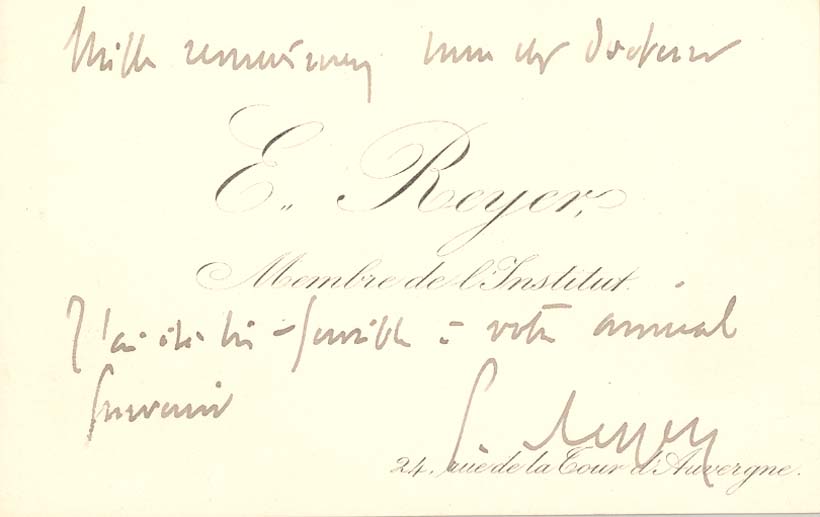 Mille remerciements mon cher Docteur
E. Reyer,
Membre de l'Institut.
J'ai été très sensible à votre amical
souvenir
E. Reyer
24, rue de la Tour d'Auvergne.